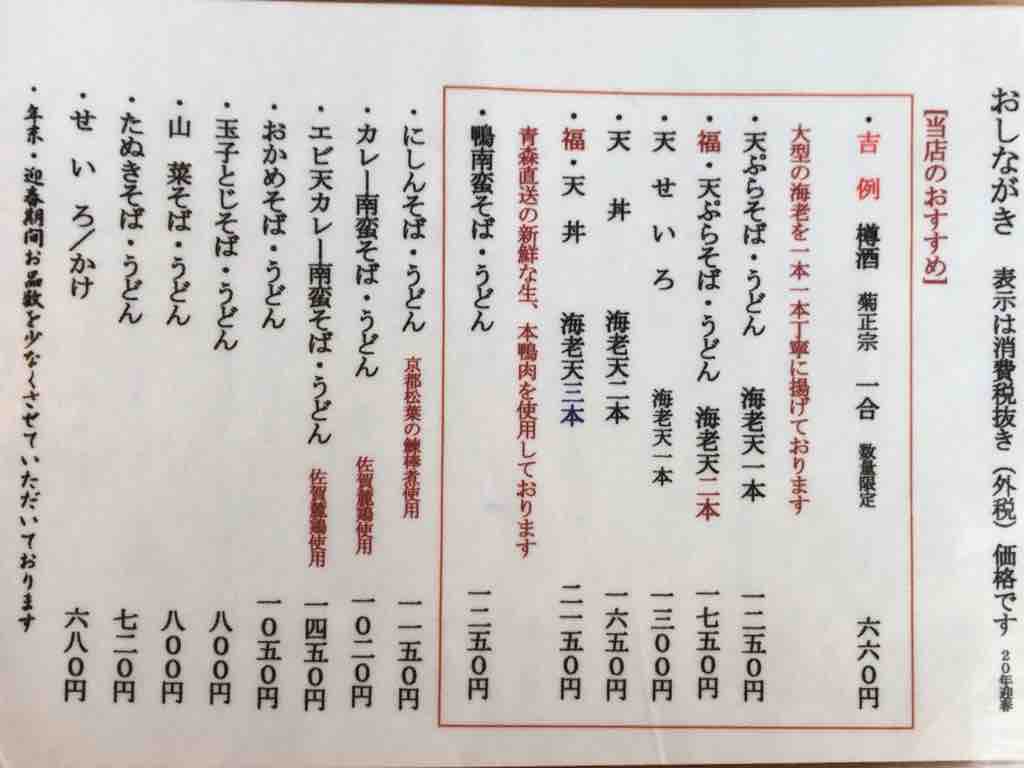 おしながき 表示は消費税抜き（外税）価格です 20年迎春
【当店のおすすめ】
・吉例 樽酒 菊正宗 一合 数量限定 六六〇円
大型の海老を一本一本丁寧に揚げております
・天ぷらそば・うどん 海老天一本 一二五〇円
福・天ぷらそば・うどん 海老天二本 一七五〇円
・天せいろ 海老天一本 一三〇〇円
・天丼 海老天二本 一六五〇円
福・天丼 海老天三本 二一五〇円
青森直送の新鮮な生、本鴨肉を使用しております
・鴨南蛮そば・うどん 一二五〇円
・にしんそば・うどん 京都松葉の鰊棒煮使用 一一五〇円
・カレー南蛮そば・うどん 佐賀麓鶏使用 一〇二〇円
・エビ天カレー南蛮そば・うどん 佐賀麓鶏使用 一四五〇円
・おかめそば・うどん 一〇五〇円
・玉子とじそば・うどん 八〇〇円
・山菜そば・うどん 八〇〇円
・たぬきそば・うどん 七二〇円
・せいろ／かけ 六八〇円
・年末・迎春期間お品数を少なくさせていただいております